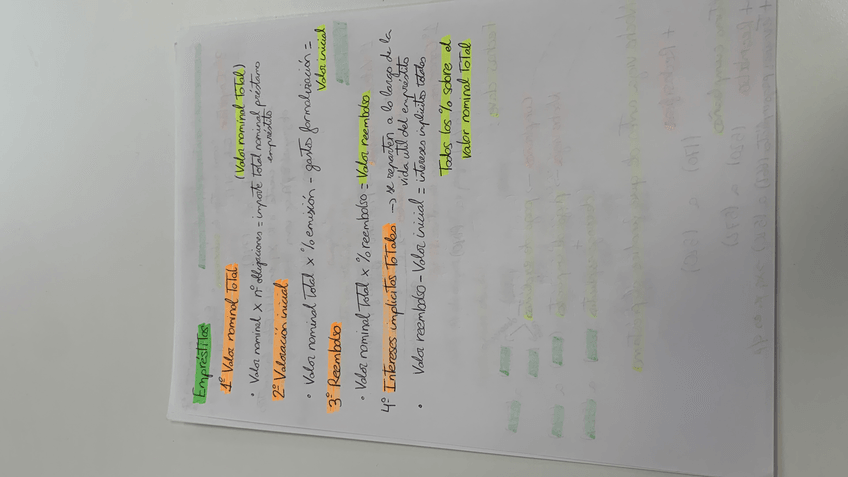 Empréstitos
1º Valor nominal Total
(Valor nominal Total)
• Valor nominal x nº obligaciones = importe total nominal préstamo
empréstito
2º Valoración inicial
• Valor nominal Total x % emisión - gastos formalización =
Valor inicial
3º Reembolso
• Valor nominal Total x % reembolso = Valor reembolso
4º Intereses implícitos Totales → se reparten a lo largo de la
vida util del empréstito
• Valor reembolso - Valor inicial = intereses implicitos totales
Todos los % sobre el
valor nominal Total